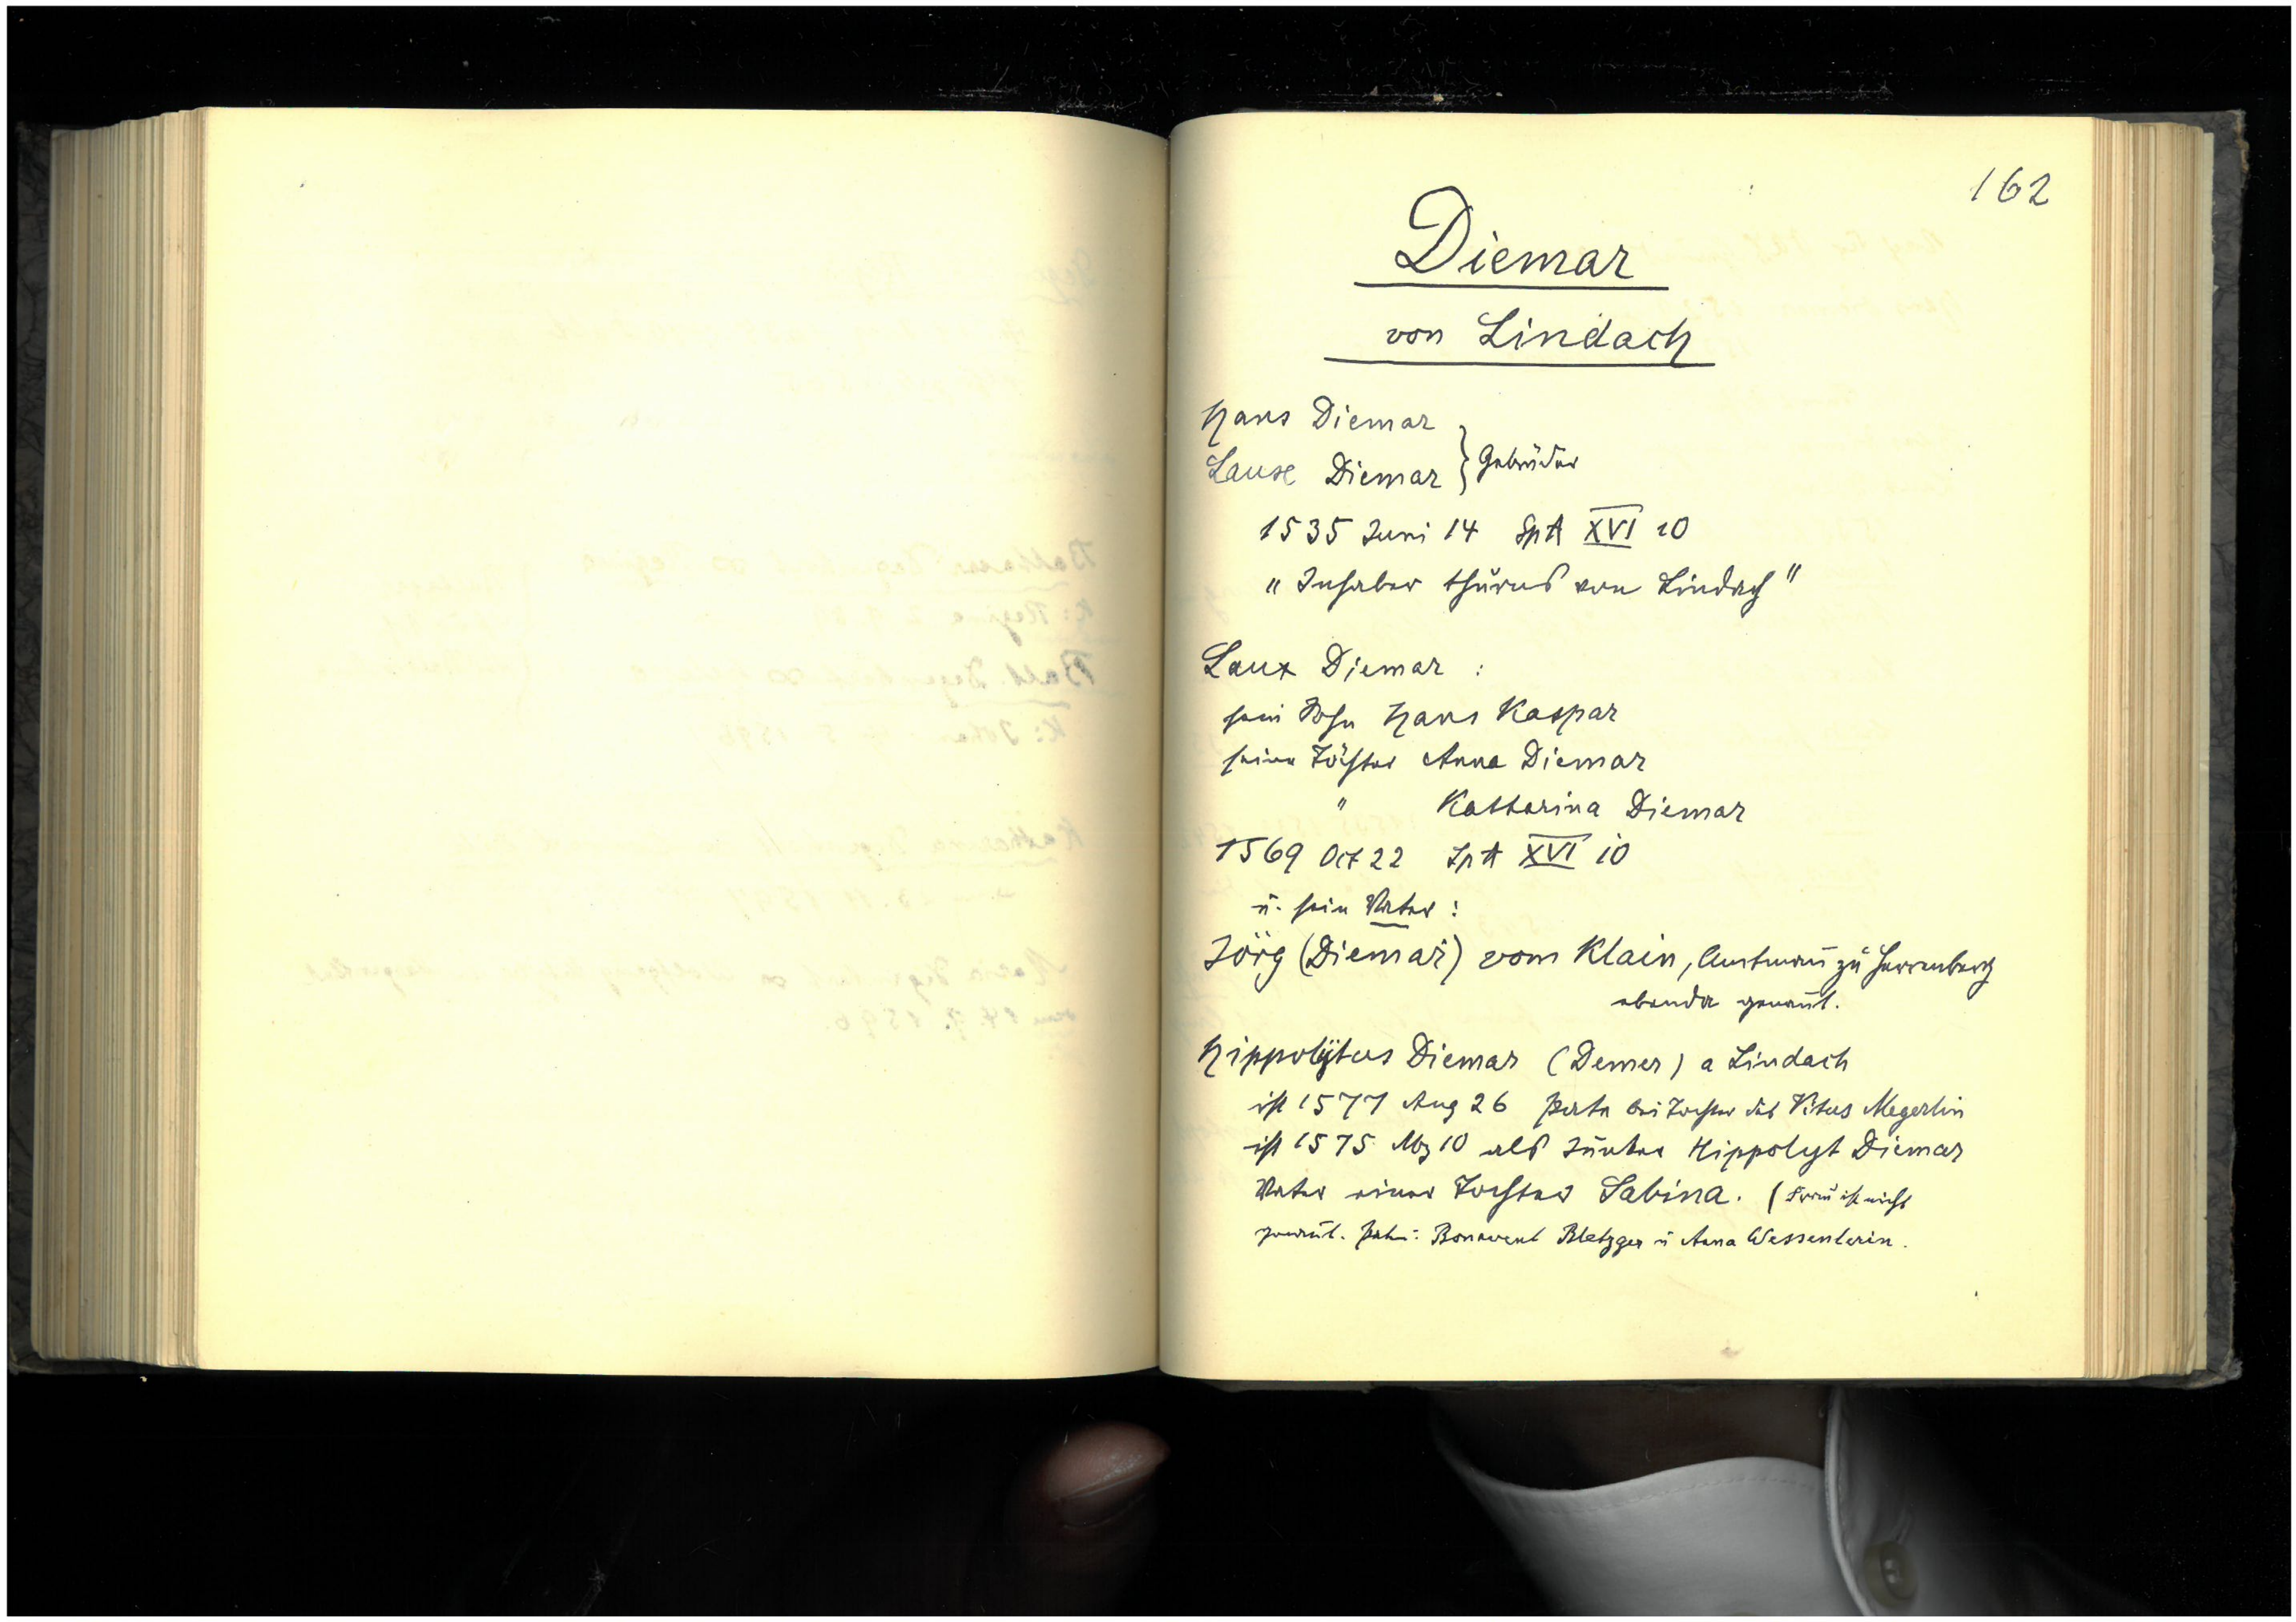 162
Diemar
von Lindach
Hans Diemar
Lause Diemar } Gebrüder
1535 Juni 14 SpA XVI 10
"Inhaber thurns von Lindach"
Laux Diemar :
sein Sohn Hans Kaspar
seine Töchter Anna Diemar
" Katharina Diemar
1569 Oct 22 SpA XVI 10
u. sein Vater :
Jörg (Diemar) vom Klain, Amtmañ zu Herrenberg
ebenda genañt.
Hippolytus Diemar (Demer) a Lindach
ist 1577 Aug 26 Pate bei Tochter des Vitus Megerlin
ist 1575 Mz 10 als Junker Hippolyt Diemar
Vater einer Tochter Sabina. (Frau ist nicht
genañt. Paten: Bonavent Bletzger u Anna Wessenlerin.